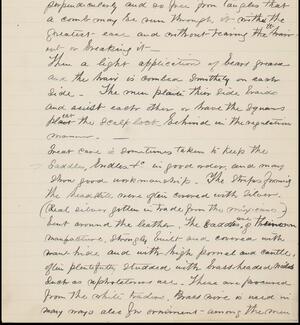 perpendicularly and so free from tangles that
a comb may be run through it with the
greatest ease and without tearing the hair
out or breaking it —
Then a light application of Bears grease
and the hair is combed smoothly on each
side. The men plait their side braids
and assist each other or have the squaws
plait the scalp lock behind in the regulation
manner. —
Great care is sometimes taken to keep the
Saddles, bridles &c in good order, and many
show good workmanship. The straps forming
the headstall were often covered with silver.
(Real silver gotten in trade from the mexicans)
bent around the leather. The saddles, of their own
manufacture, strongly built and covered with
raw hide and with high pommel and cantle,
often plentifully studded with brass headed nails
such as upholsterers use. These are procured
from the white traders. Brass wire is used in
many ways also for ornament — among the men